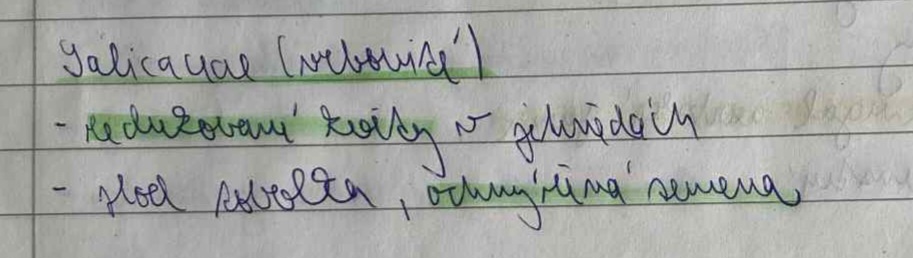 Salicaceae (vrbovité)
- redukované květy v jehnědách
- plod tobolka, ochmýřená semena